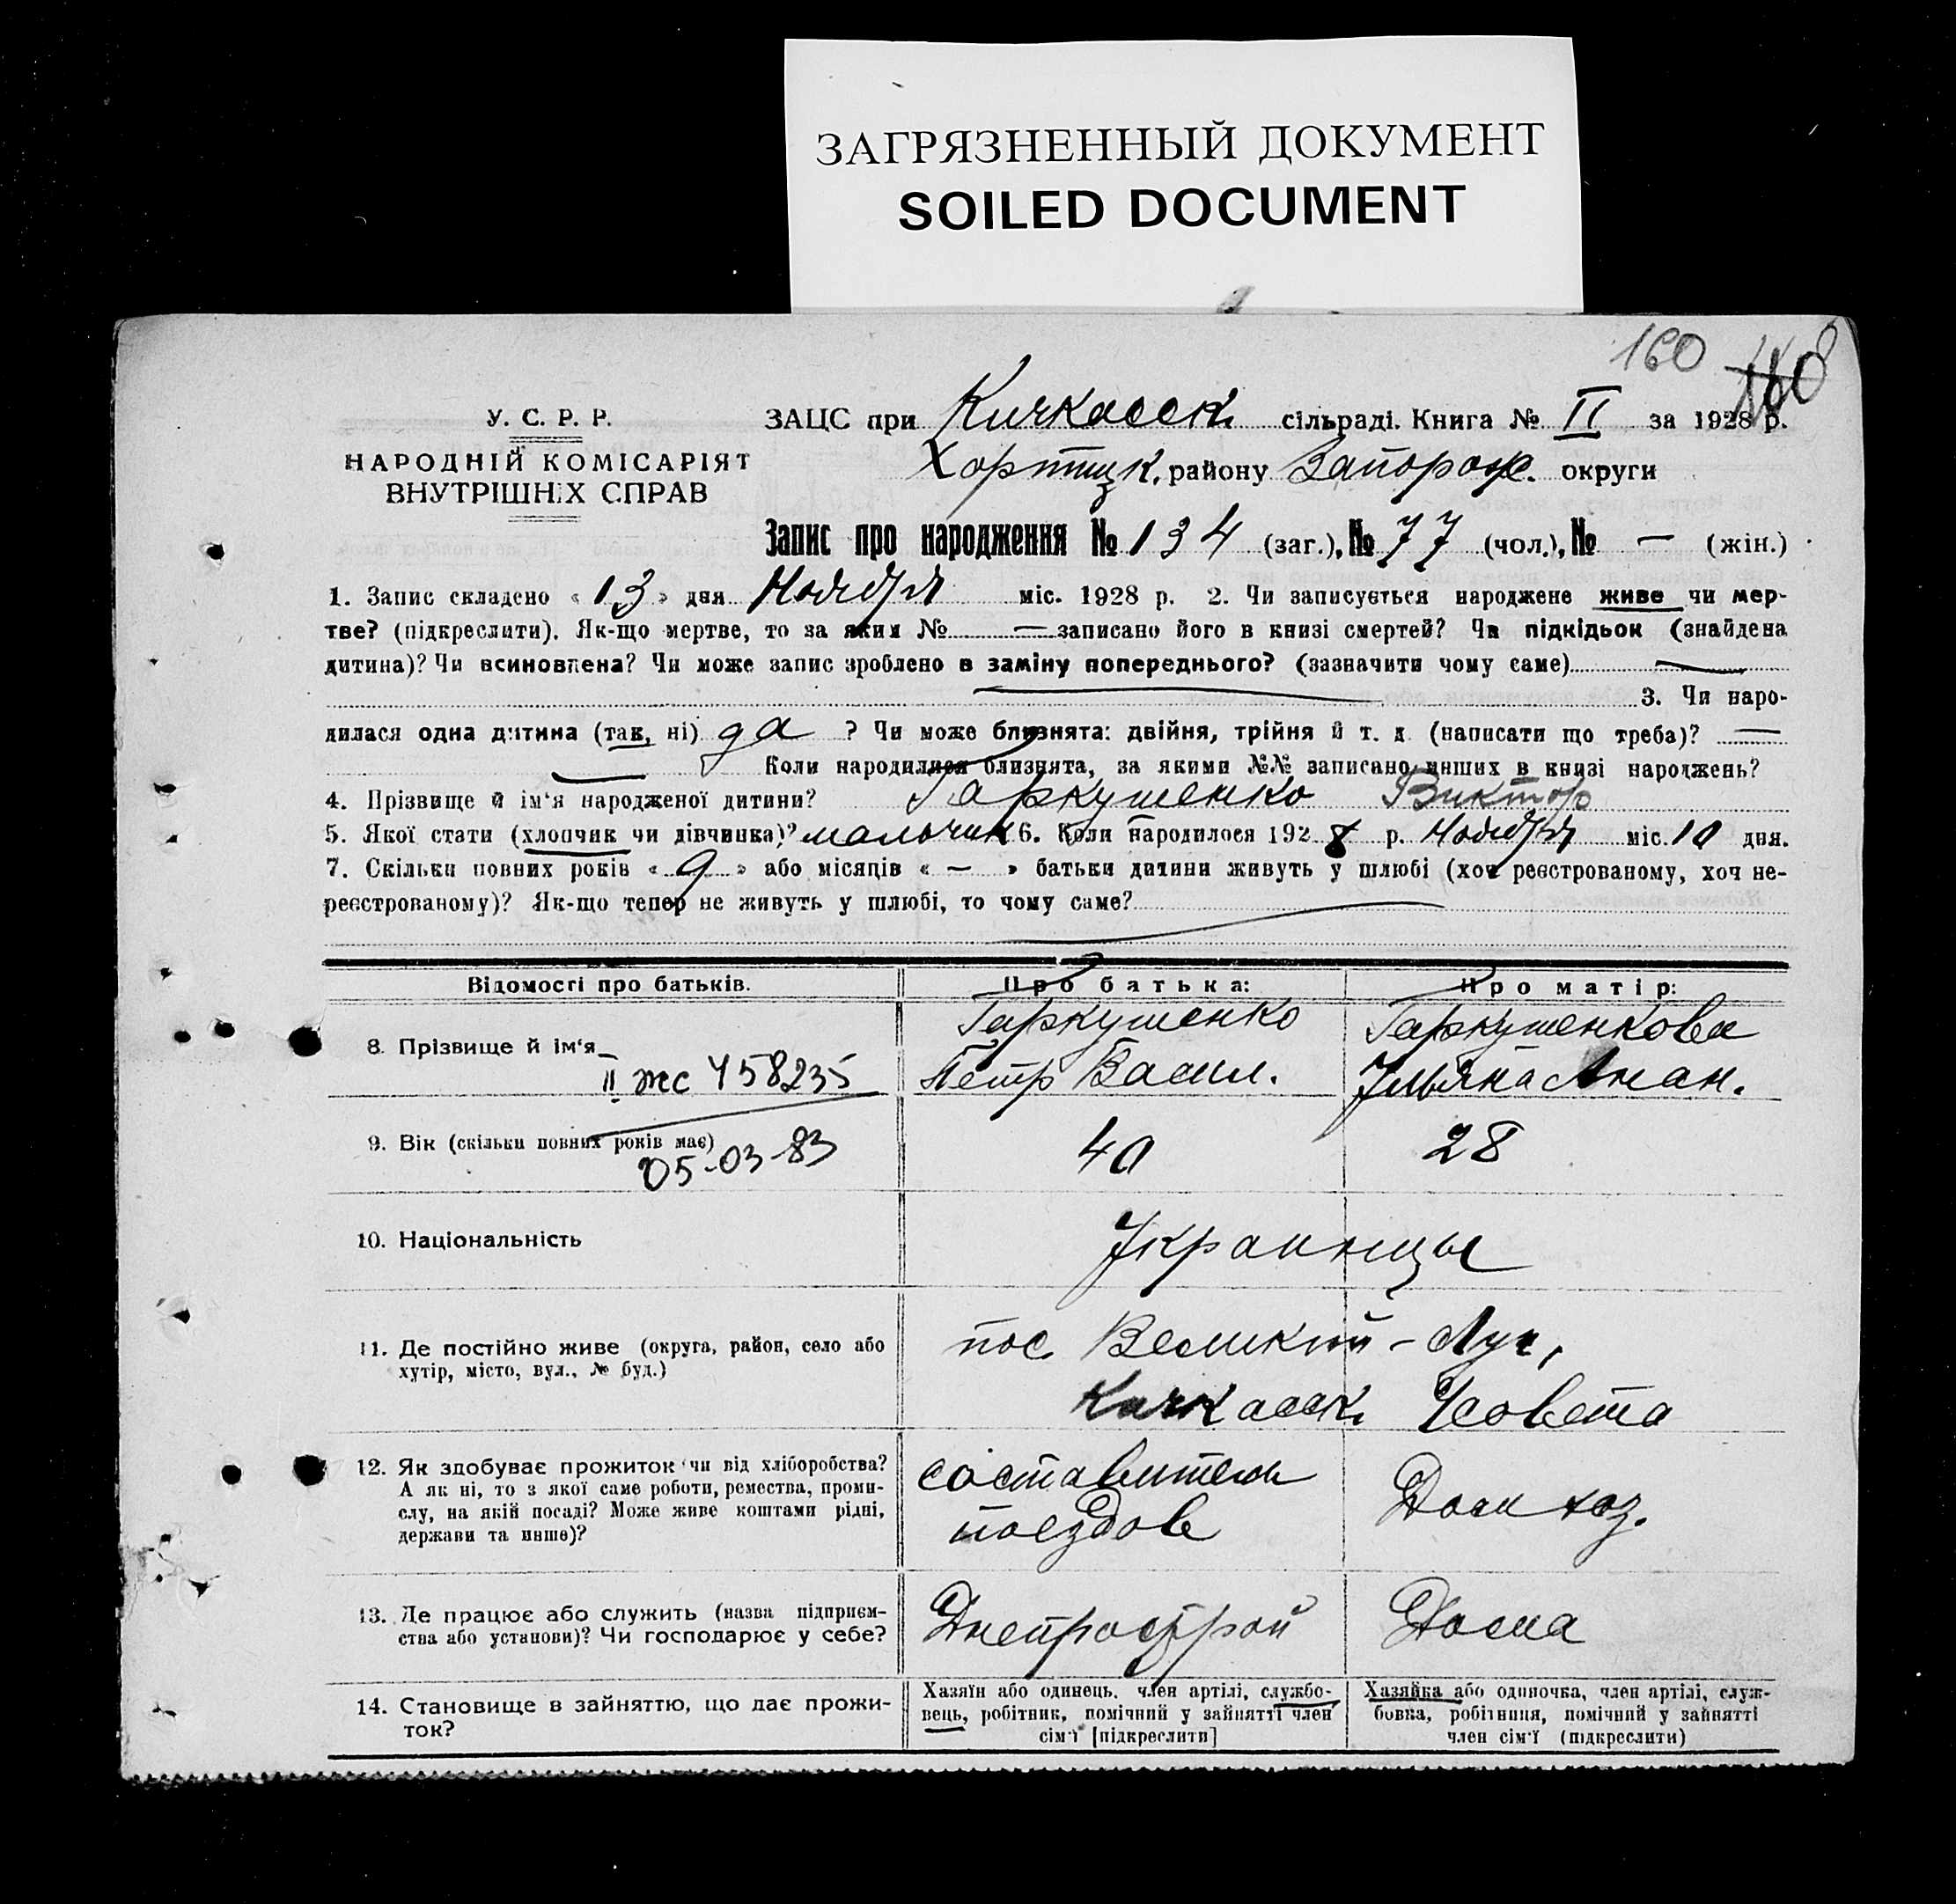 ЗАГРЯЗНЕННЫЙ ДОКУМЕНТ
SOILED DOCUMENT
160
160
У. С. Р. Р.
НАРОДНІЙ КОМІСАРІЯТ
ВНУТРІШНІХ СПРАВ
ЗАЦС при Кичкасск. сільраді. Книга № II за 1928 р.
Хортицк. району Запорож. округи
Запис про народження № 134 (заг.), № 77 (чол.), № — (жін.)
1. Запис складено « 13 » дня Ноября міс. 1928 р. 2. Чи записується народжене живе чи мер-
тве? (підкреслити). Як-що мертве, то за яким № — записано його в книзі смертей? Чи підкідьок (знайдена
дитина)? Чи всиновлена? Чи може запис зроблено в заміну попереднього? (зазначити чому саме) —
3. Чи наро-
дилася одна дитина (так, ні) да ? Чи може близнята: двійня, трійня й т. д. (написати що треба)? —
— Коли народилися близнята, за якими №№ записано инших в книзі народжень?
4. Прізвище й ім'я народженої дитини? Гаркушенко Виктор
5. Якої стати (хлопчик чи дівчинка)? мальчик 6. Коли народилося 1928 р. Ноября міс. 10 дня.
7. Скільки повних років « 9 » або місяців « — » батьки дитини живуть у шлюбі (хоч реєстрованому, хоч не-
реєстрованому)? Як-що тепер не живуть у шлюбі, то чому саме? —
Відомості про батьків. Про батька: Про матір:
8. Прізвище й ім'я Гаркушенко Гаркушенкова
II жс 458235 Петр Васил. Ульяна Анан.
9. Вік (скільки повних років має) 40 28
05-03-83
10. Національність Украинцы
11. Де постійно живе (округа, район, село або пос. Великий-Луг,
хутір, місто, вул., № буд.)
Кичкасск. Совета
12. Як здобуває прожиток чи від хліборобства? составитель
А як ні, то з якої саме роботи, ремества, проми- поездов Дом хоз.
слу, на якій посаді? Може живе коштами рідні,
держави та инше)?
13. Де працює або служить (назва підприєм- Днепрострой Дома
ства або установи)? Чи господарює у себе?
14. Становище в зайняттю, що дає прожи-
ток?
Хазяїн або одинець, член артілі, службо-
вець, робітник, помічний у зайнятті член
сім'ї [підкреслити]
Хазяйка або одиночка, член артілі, служ-
бовка, робітниця, помічний у зайнятті
член сім'ї (підкреслити)